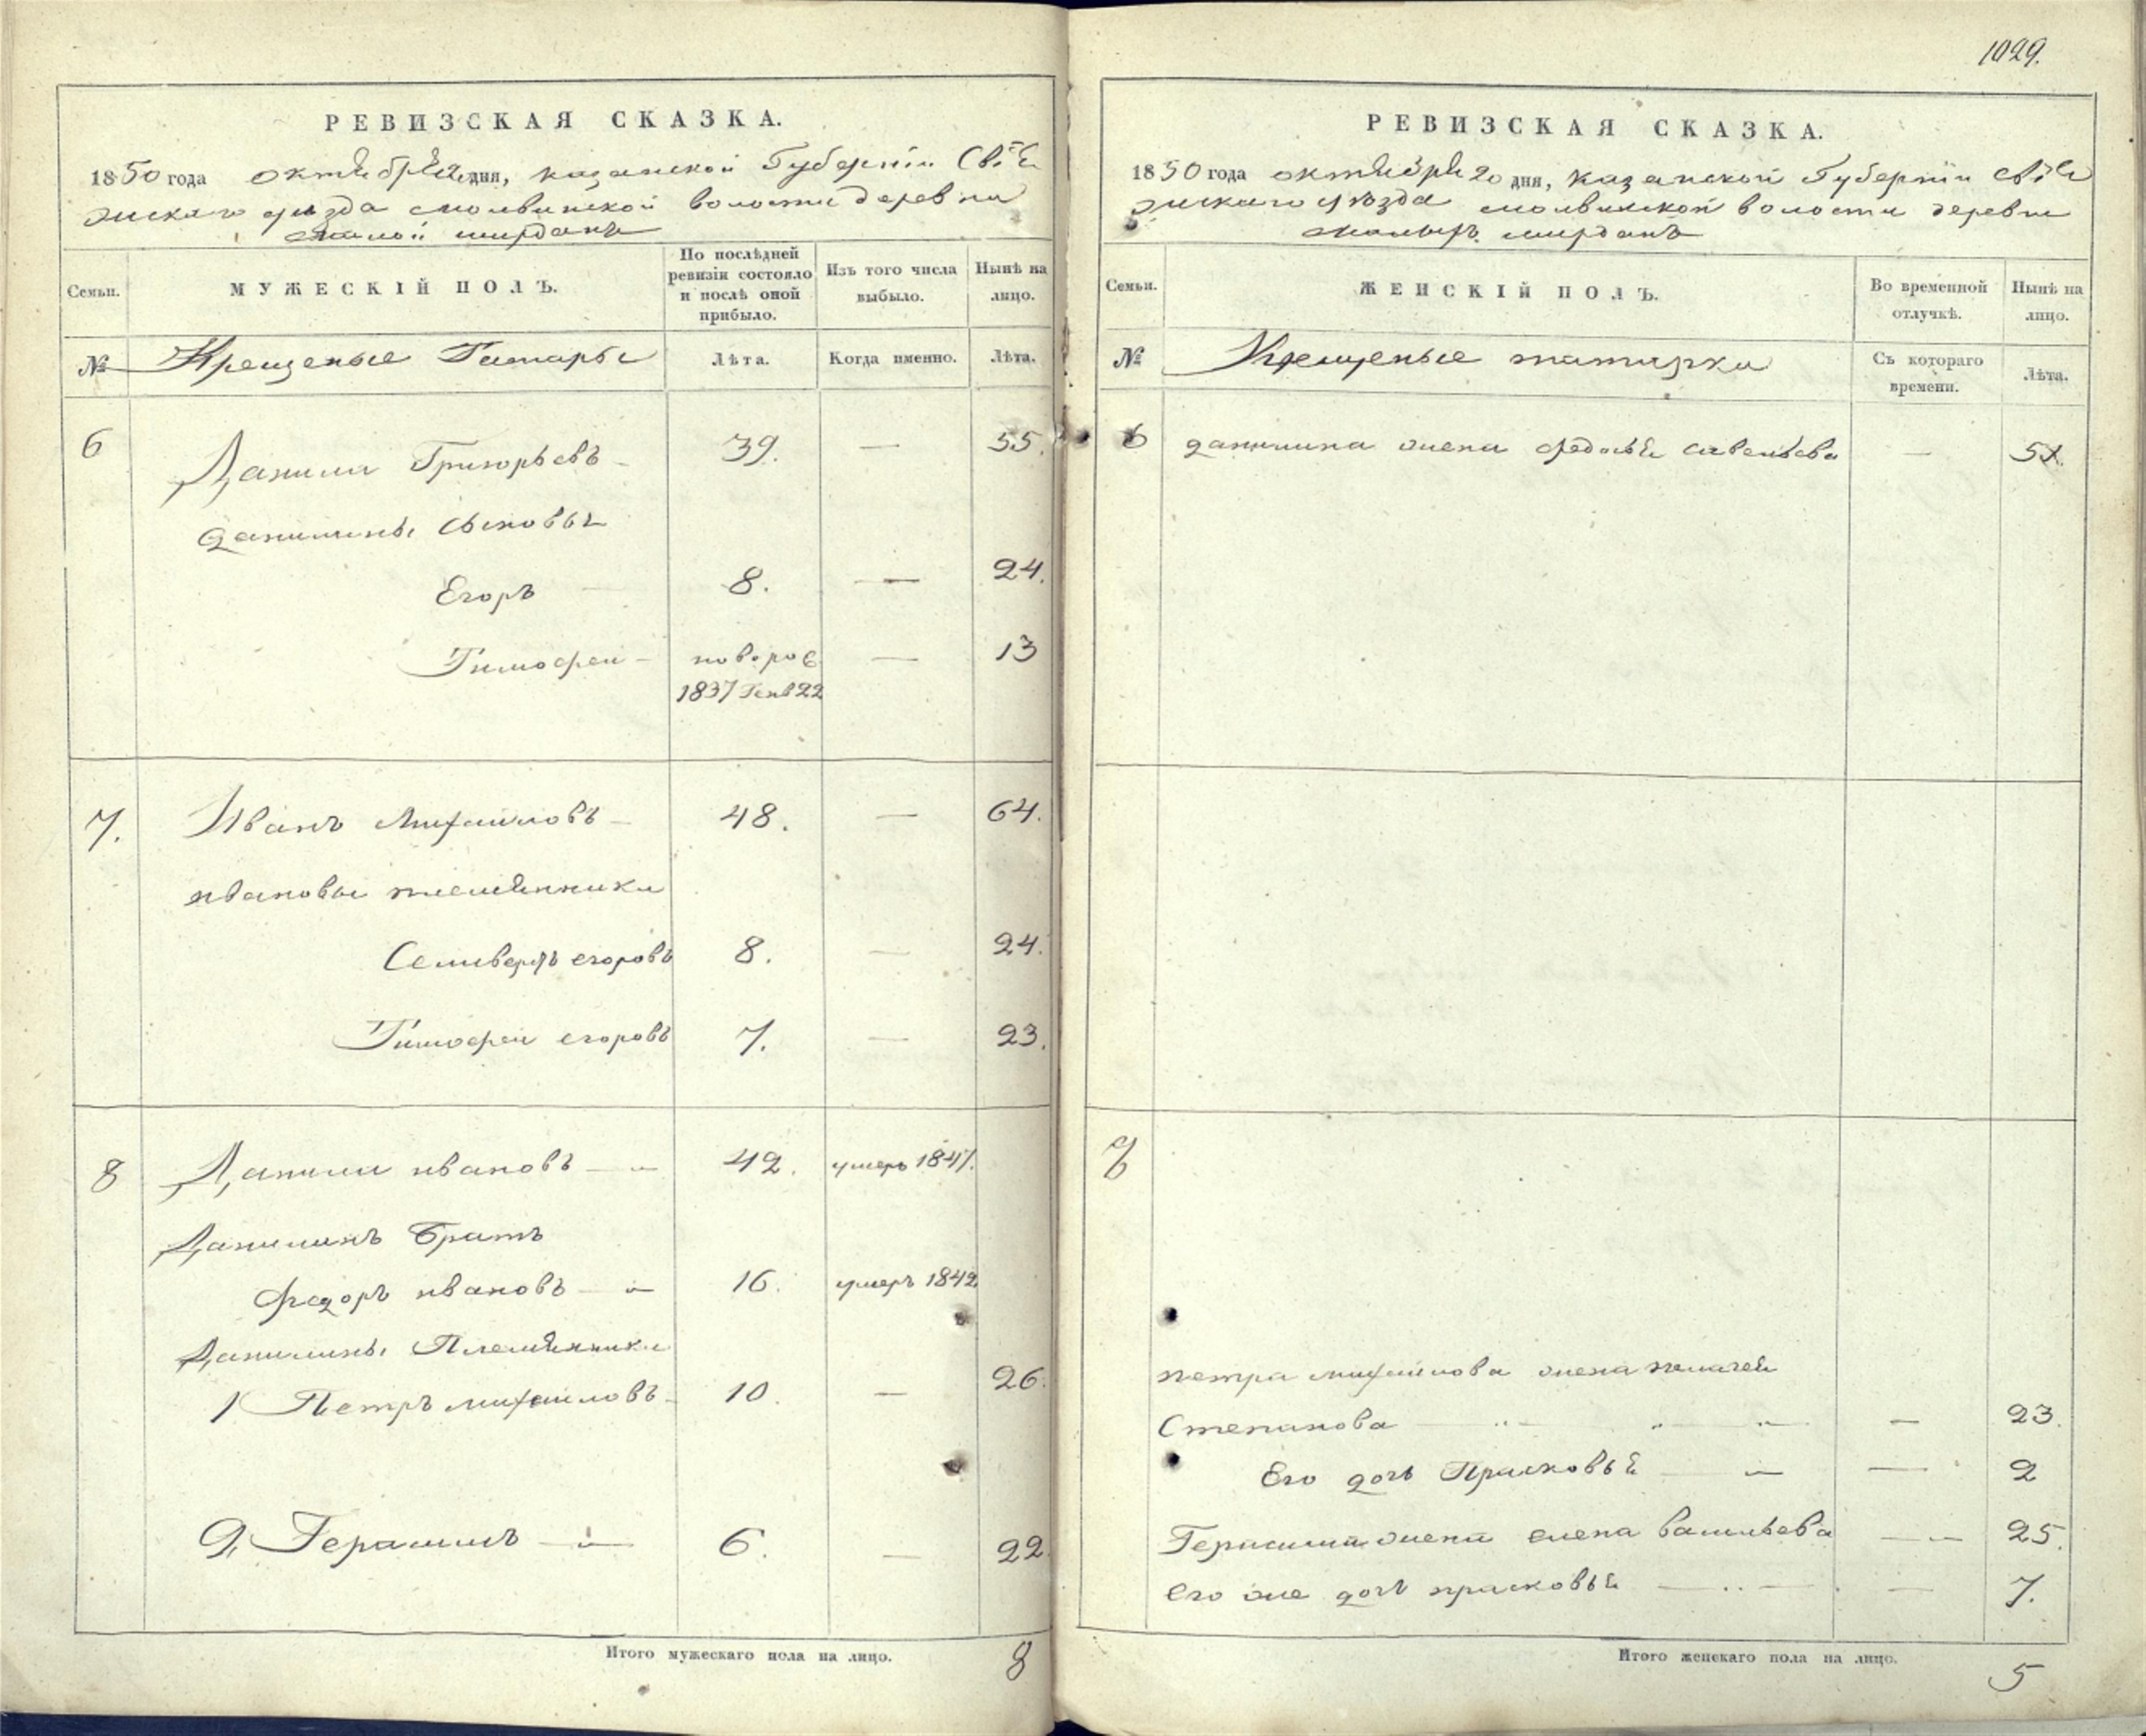 1029.
РЕВИЗСКАЯ СКАЗКА.
1850 года октября дня, казанской Губерніи Свія
жскаго уѣзда молвинской волости деревни
малой ширданъ
Семьи.
МУЖЕСКІЙ ПОЛЪ.
По послѣдней ревизіи состояло и послѣ оной прибыло.
Изъ того числа выбыло.
Нынѣ на лицо.
№ Крещеные Татары Лѣта. Когда именно. Лѣта.
6 Данила Григорьевъ 39. — 55.
данилины сыновья
Егоръ 8. — 24.
Тимофеи — новорож — 13
1837 Генв 22
7. Иванъ Михайловъ — 48. — 64.
ивановы племянники
Селиверстъ егоровъ 8. — 24.
Тимофеи егоровъ 7. — 23.
8 Данила ивановъ 42. умеръ 1847.
Данилинъ Братъ
Федоръ ивановъ 16. умеръ 1842
Данилины Племянники
1 Петръ михайловъ 10. — 26.
2, Герасимъ 6. — 22.
Итого мужескаго пола на лицо. 8
РЕВИЗСКАЯ СКАЗКА.
1850 года октября 20 дня, казанской Губерніи свія
жскаго уѣзда молвинской волости деревни
малыхъ ширданъ
Семьи.
ЖЕНСКІЙ ПОЛЪ.
Во временной отлучкѣ.
Нынѣ на лицо.
№ Крещеные татарки Съ котораго времени. Лѣта.
6 данилина жена федосья савельева — 51.
8
петра михайлова жена пелагея
Степанова — 23.
Его дочь Прасковья — 2
Герасима жена елена васильева — 25.
его же дочь прасковья — 7.
Итого женскаго пола на лицо. 5